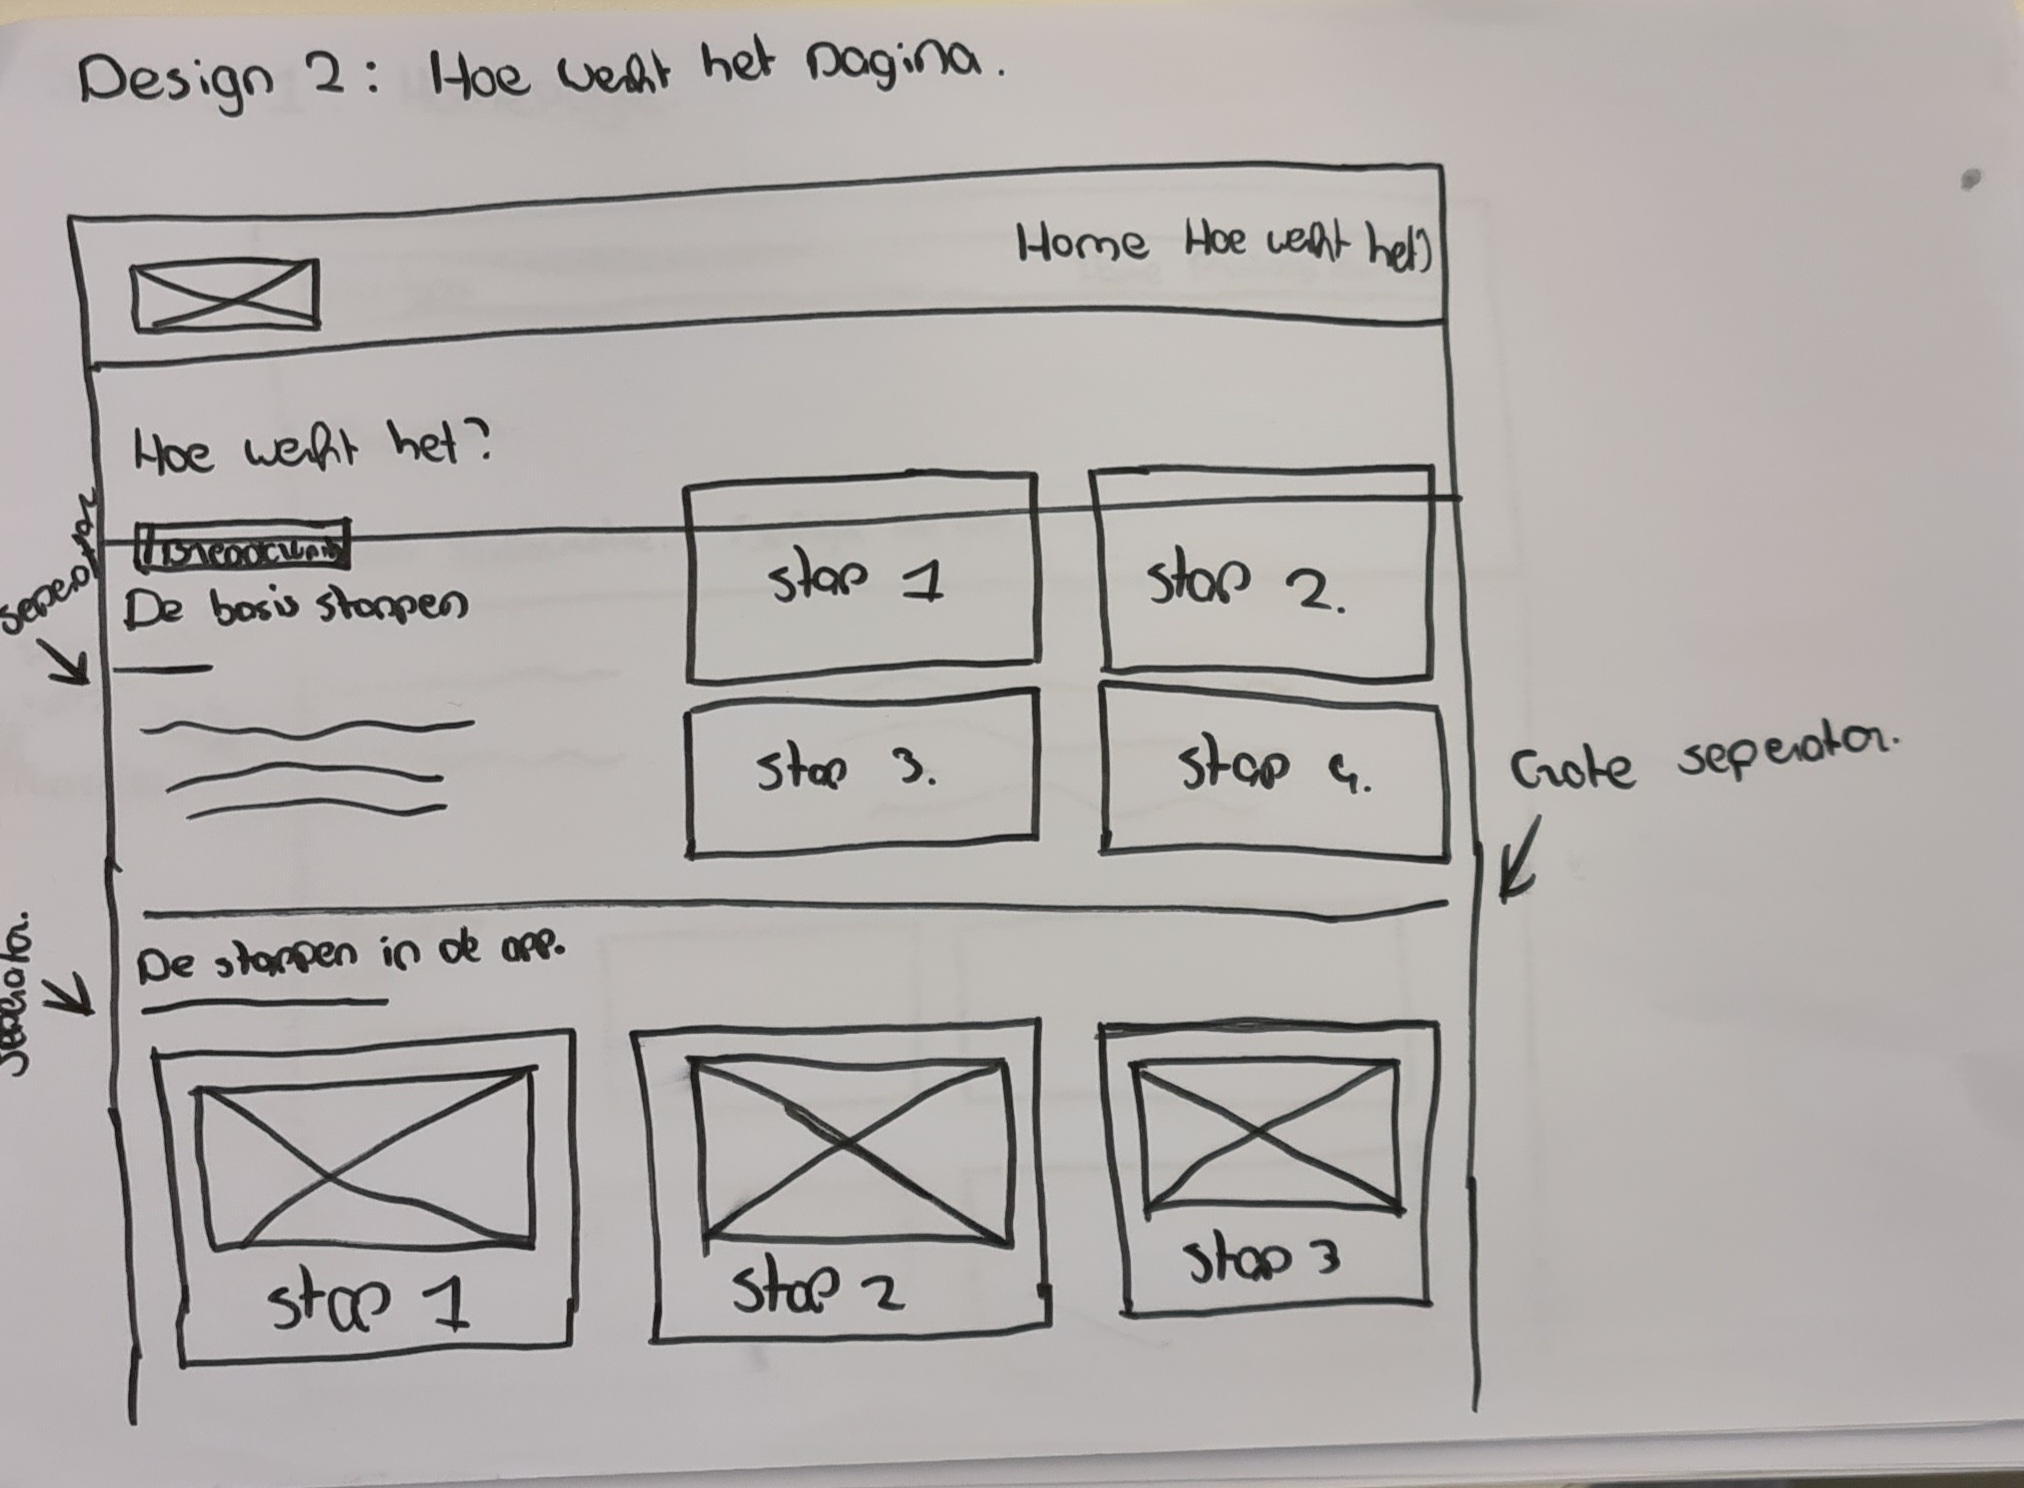 Design 2: Hoe werkt het pagina.
Home Hoe werkt het?
Hoe werkt het?
Breadcrumb
De basis stappen
seperator
stap 1
stap 2.
stap 3.
stap 4.
Grote seperator.
De stappen in de app.
seperator.
stap 1
stap 2
stap 3